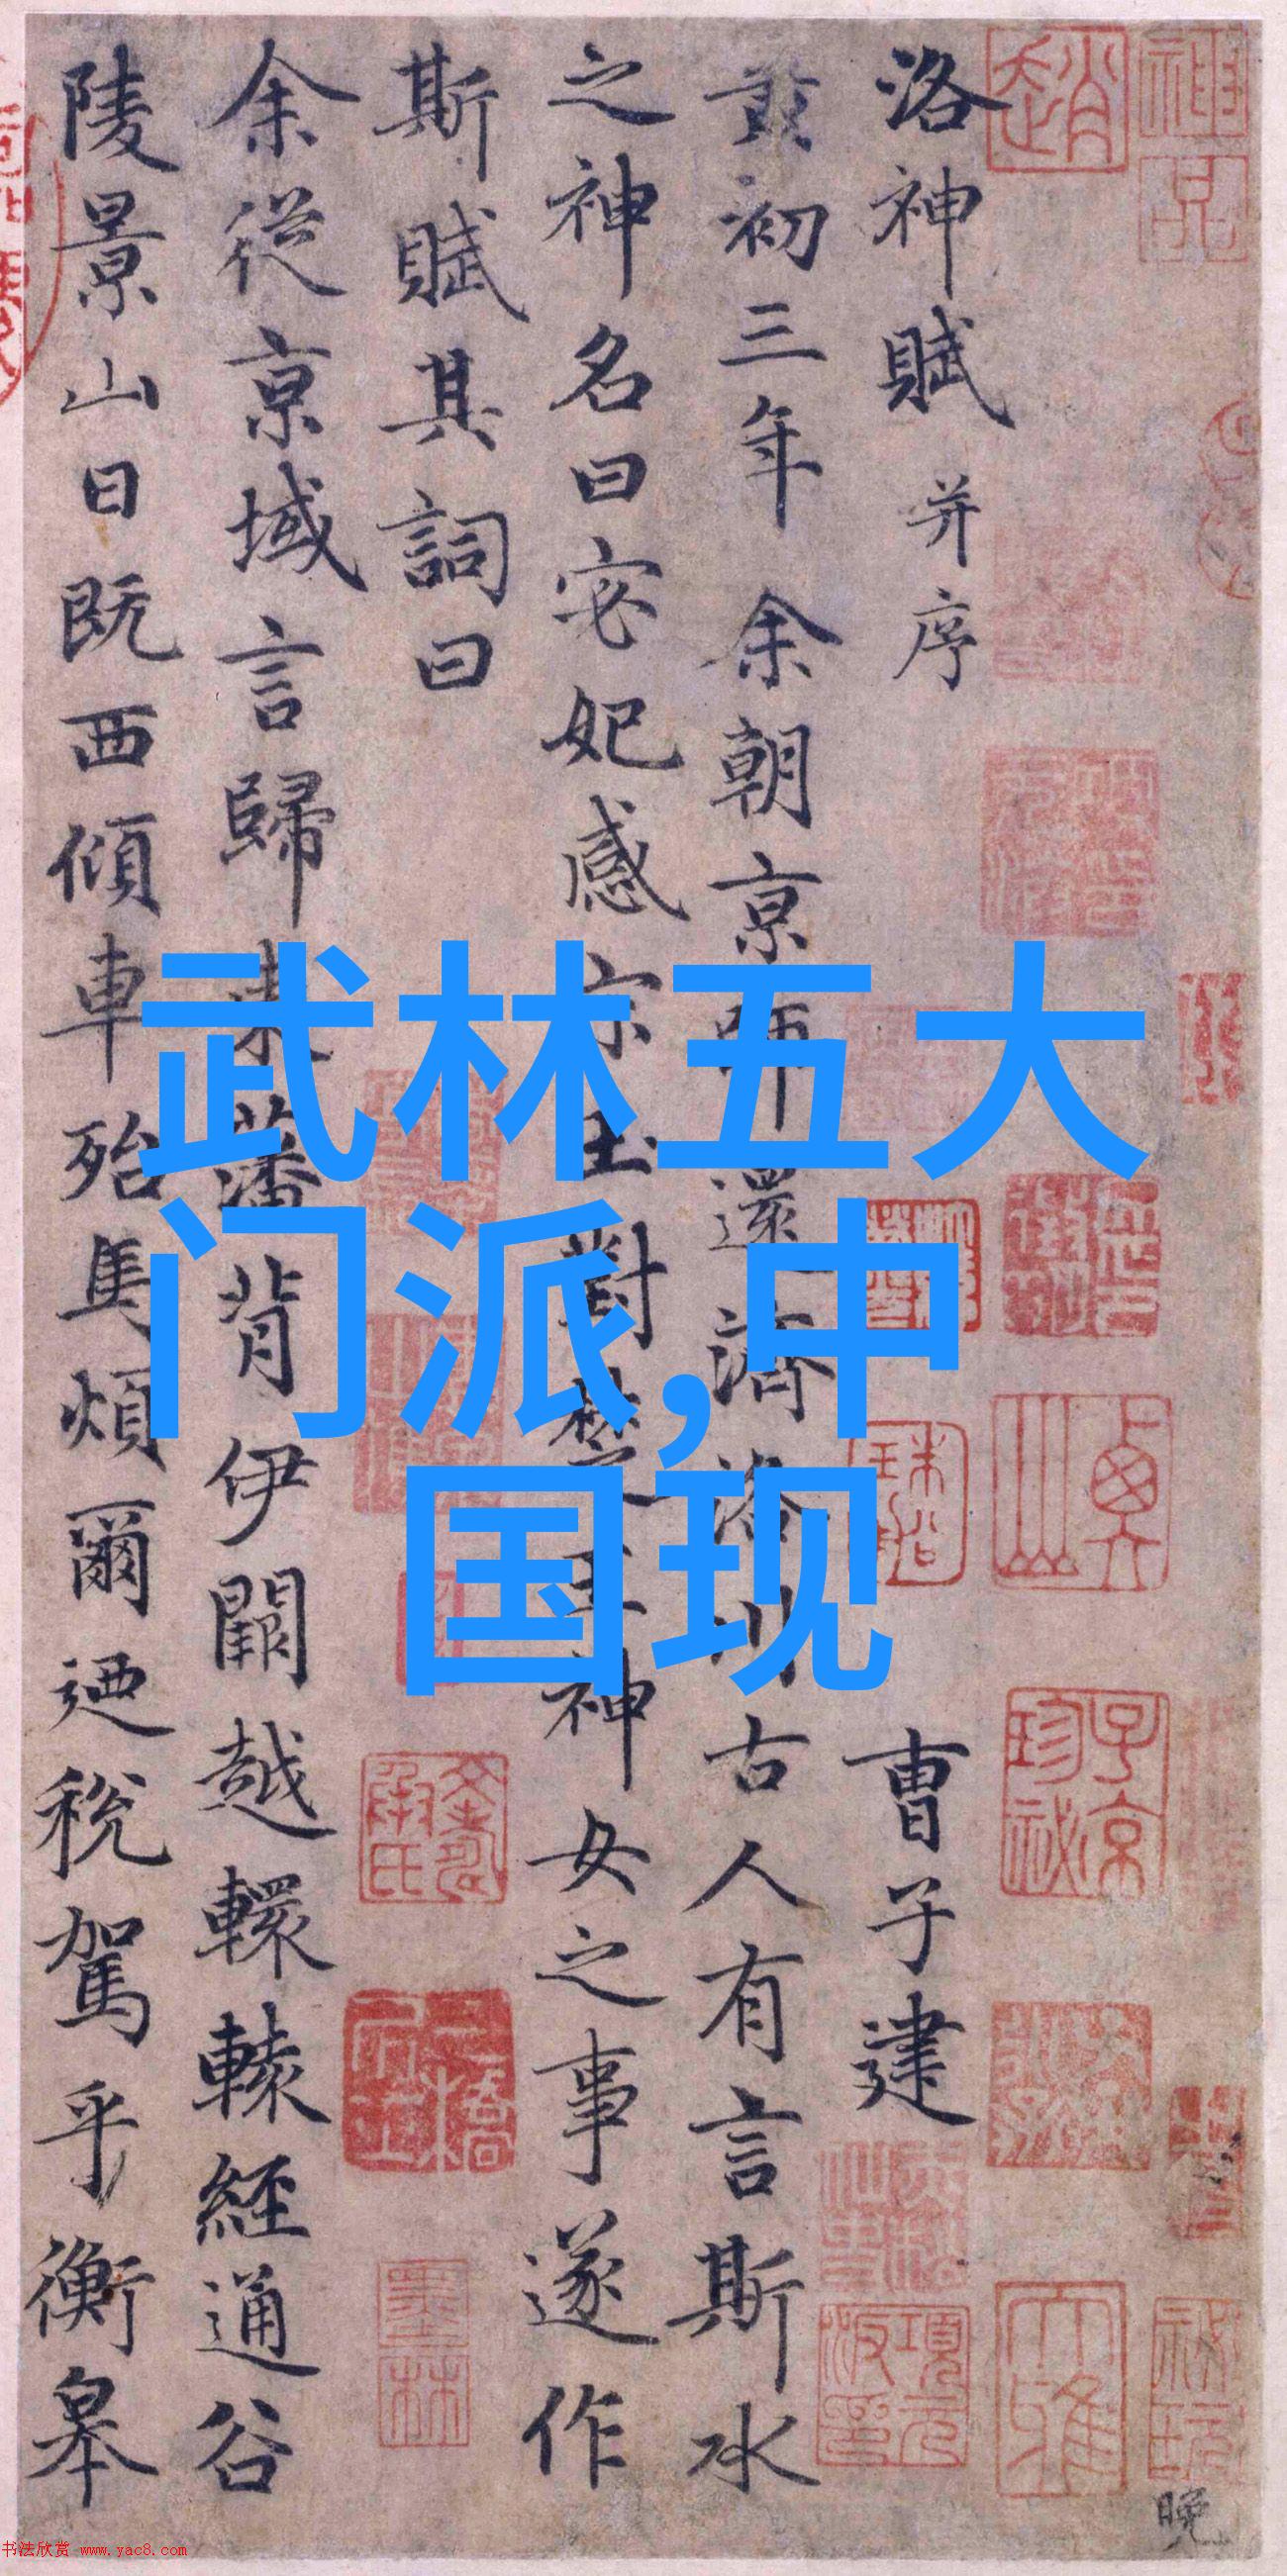 武林五大
门派,中
国现
神品
趙
洛神賦 并序 曹子建
黃初三年余朝京師還濟洛川古人有言斯水
之神名曰宓妃感宋玉對楚王神女之事遂作
斯賦其詞曰
余從京域言歸東藩背伊闕越轘轅經通谷
陵景山日既西傾車殆馬煩爾迺稅駕乎衡皋
子京珍祕
項元汴印
墨林
晚
书法欣赏 www.yac8.com